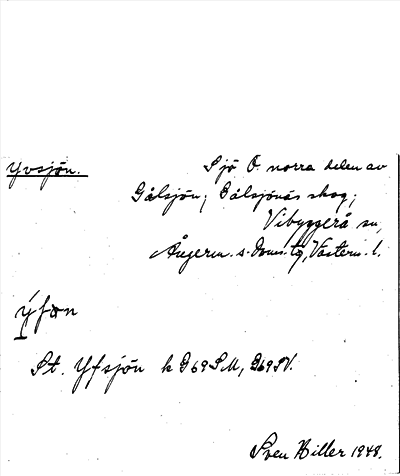 Yvsjön.
Sjö Ö. norra delen av
Gålsjön; Gålsjönäs skog;
Vibyggerå sn,
Ångerm. s. doms. tg, Västern. l.
ýfɷn
St. Yfsjön k G 69 SM, G 69 SV.
Sven Hiller 1948.